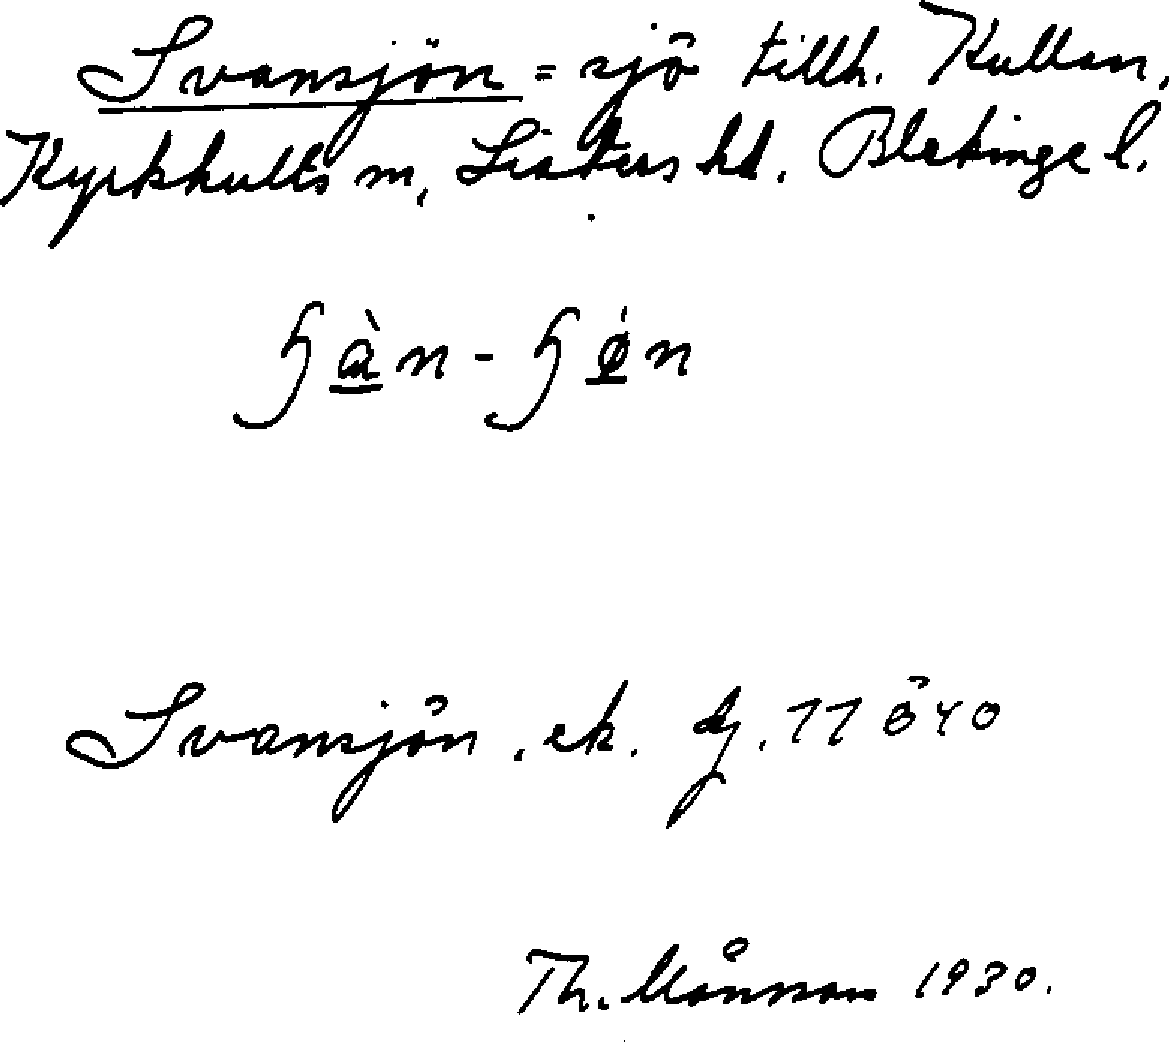 Svansjön = sjö tillh. Kullan,
Kyrkhults sn, Listers hd. Blekinge l.
Svansjön. ek. bl. 11 ö 40
Th. Månsson 1930.